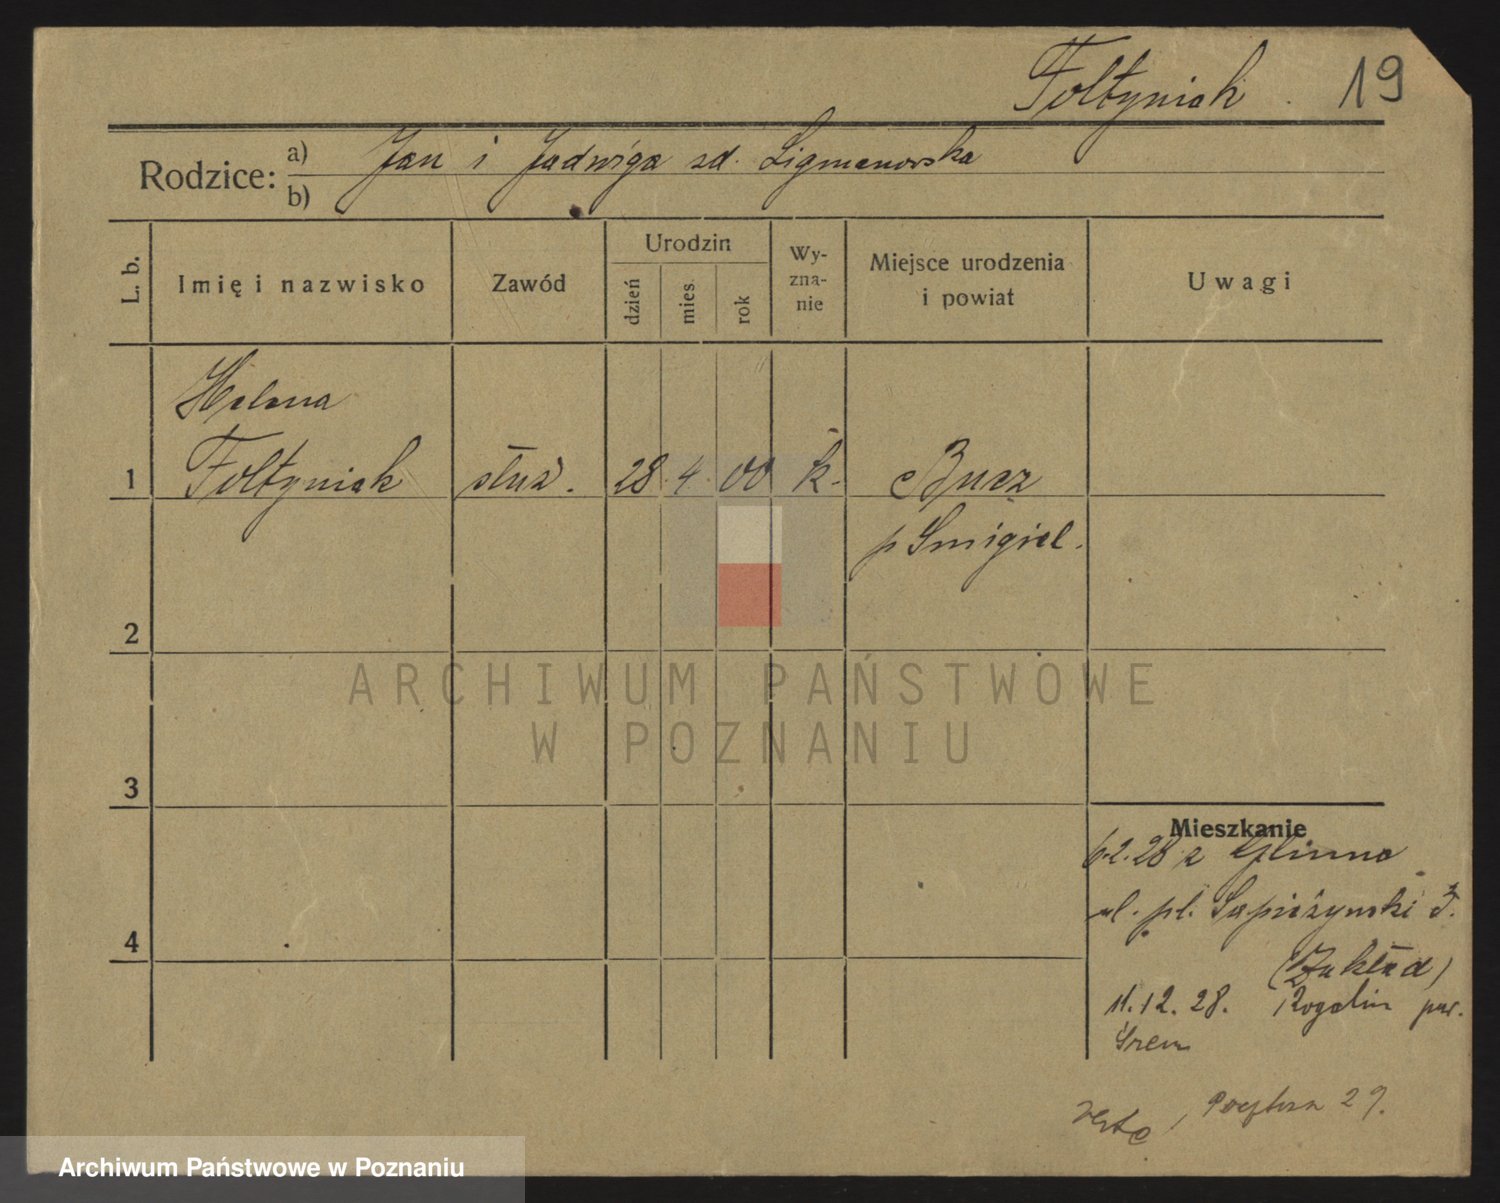 Fołtyniak 19
Rodzice: a) Jan i Jadwiga zd. Ligmanowska
b)
L. b. Imię i nazwisko Zawód Urodzin dzień mies. rok Wyznanie Miejsce urodzenia i powiat Uwagi
Helena
1 Fołtyniak służ. 28. 4. 00 k. Bucz
p Śmigiel.
2
ARCHIWUM PAŃSTWOWE
W POZNANIU
3
Mieszkanie
6.2.28 z Glinno
ul. pl. Sapieżyński 3.
4
(Zakład)
11.12.28. Rogalin pow.
Śrem
29.
Archiwum Państwowe w Poznaniu